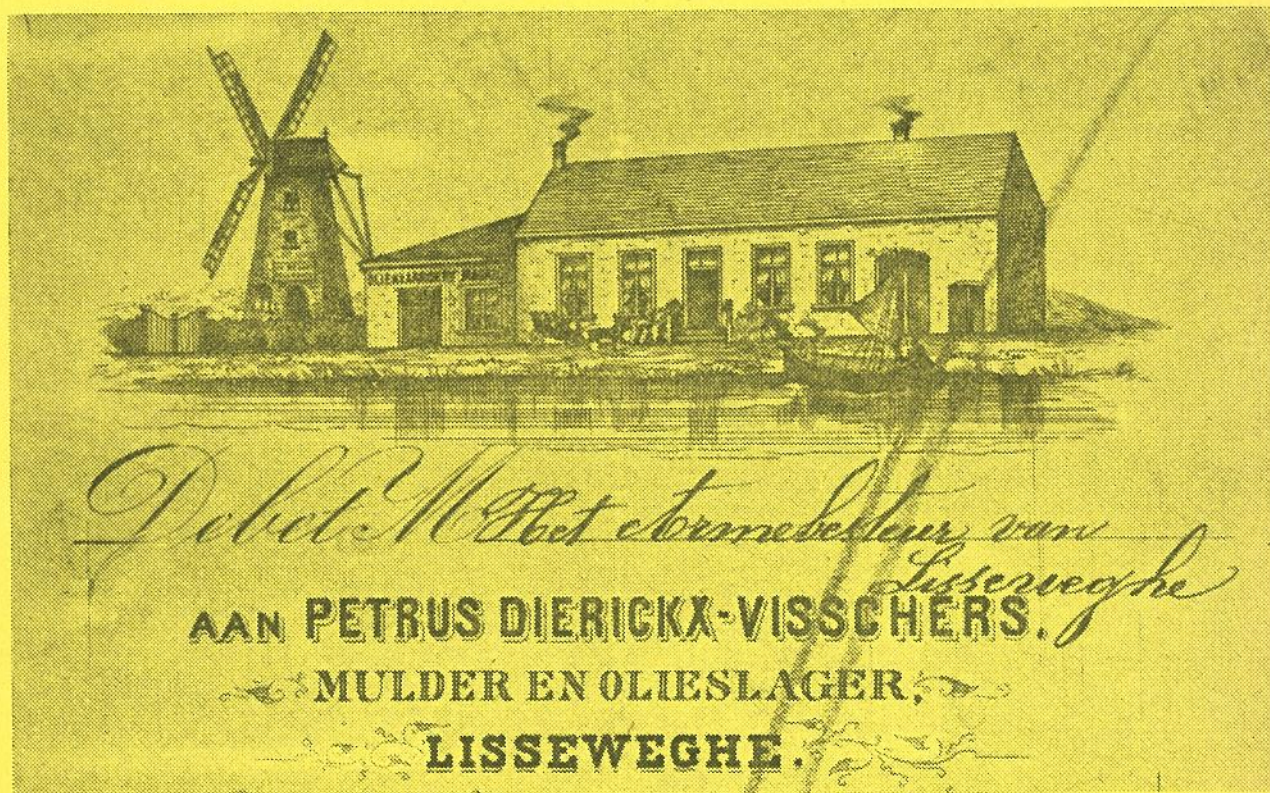 Debet M Het Armebestuur van
Lisseweghe
AAN PETRUS DIERICKX-VISSCHERS.
MULDER EN OLIESLAGER,
LISSEWEGHE.